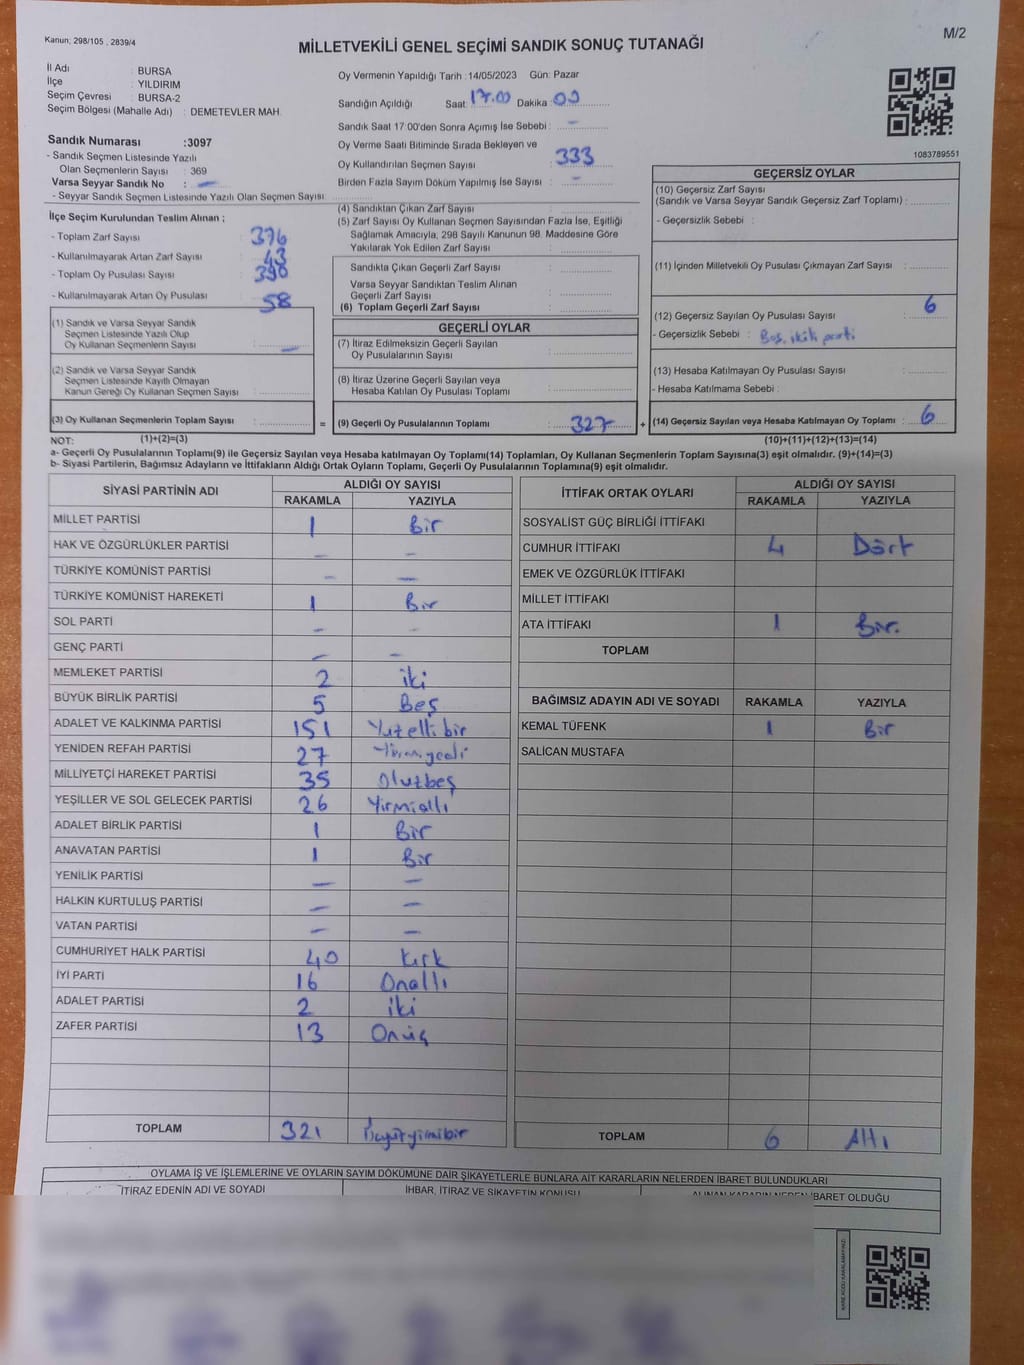 Kanun; 298/105 , 2839/4
M/2
MİLLETVEKİLİ GENEL SEÇİMİ SANDIK SONUÇ TUTANAĞI
İl Adı : BURSA
İlçe YILDIRIM
Seçim Çevresi : BURSA-2
Seçim Bölgesi (Mahalle Adı) : DEMETEVLER MAH.
Sandık Numarası :3097
- Sandık Seçmen Listesinde Yazılı
Olan Seçmenlerin Sayısı : 369
Varsa Seyyar Sandık No : —
- Seyyar Sandık Seçmen Listesinde Yazılı Olan Seçmen Sayısı
Oy Vermenin Yapıldığı Tarih :14/05/2023 Gün: Pazar
Sandığın Açıldığı Saat: 17.00 Dakika :00
Sandık Saat 17 00'den Sonra Açımış İse Sebebi : —
Oy Verme Saati Bitiminde Sırada Bekleyen ve
Oy Kullandırılan Seçmen Sayısı : 333
Birden Fazla Sayım Döküm Yapılmış İse Sayısı : —
1083789551
İlçe Seçim Kurulundan Teslim Alınan ;
- Toplam Zarf Sayısı : 376
- Kullanılmayarak Artan Zarf Sayısı : 43
- Toplam Oy Pusulası Sayısı :
- Kullanılmayarak Artan Oy Pusulası : 58
(1) Sandık ve Varsa Seyyar Sandık
Seçmen Listesinde Yazılı Olup
Oy Kullanan Seçmenlerin Sayısı : —
(2) Sandık ve Varsa Seyyar Sandık
Seçmen Listesinde Kayıtlı Olmayan
Kanun Gereği Oy Kullanan Seçmen Sayısı :
(3) Oy Kullanan Seçmenlerin Toplam Sayısı : =
(4) Sandıktan Çıkan Zarf Sayısı
(5) Zarf Sayısı Oy Kullanan Seçmen Sayısından Fazla İse, Eşitliği
Sağlamak Amacıyla, 298 Sayılı Kanunun 98. Maddesine Göre
Yakılarak Yok Edilen Zarf Sayısı :
Sandıkta Çıkan Geçerli Zarf Sayısı :
Varsa Seyyar Sandıktan Teslim Alınan
Geçerli Zarf Sayısı :
(6) Toplam Geçerli Zarf Sayısı :
GEÇERLİ OYLAR
(7) İtiraz Edilmeksizin Geçerli Sayılan
Oy Pusulalarının Sayısı :
(8) İtiraz Üzerine Geçerli Sayılan veya
Hesaba Katılan Oy Pusulası Toplamı :
(9) Geçerli Oy Pusulalarının Toplamı : 327 +
GEÇERSİZ OYLAR
(10) Geçersiz Zarf Sayısı
(Sandık ve Varsa Seyyar Sandık Geçersiz Zarf Toplamı) :
- Geçersizlik Sebebi :
(11) İçinden Milletvekili Oy Pusulası Çıkmayan Zarf Sayısı :
(12) Geçersiz Sayılan Oy Pusulası Sayısı : 6
- Geçersizlik Sebebi : Boş, ikili parti
(13) Hesaba Katılmayan Oy Pusulası Sayısı :
- Hesaba Katılmama Sebebi :
(14) Geçersiz Sayılan veya Hesaba Katılmayan Oy Toplamı : 6
NOT: (1)+(2)=(3) (10)+(11)+(12)+(13)=(14)
a- Geçerli Oy Pusulalarının Toplamı(9) ile Geçersiz Sayılan veya Hesaba katılmayan Oy Toplamı(14) Toplamları, Oy Kullanan Seçmenlerin Toplam Sayısına(3) eşit olmalıdır. (9)+(14)=(3)
b- Siyasi Partilerin, Bağımsız Adayların ve İttifakların Aldığı Ortak Oyların Toplamı, Geçerli Oy Pusulalarının Toplamına(9) eşit olmalıdır.
SİYASİ PARTİNİN ADI ALDIĞI OY SAYISI
RAKAMLA YAZIYLA
MİLLET PARTİSİ 1 Bir
HAK VE ÖZGÜRLÜKLER PARTİSİ — —
TÜRKİYE KOMÜNİST PARTİSİ — —
TÜRKİYE KOMÜNİST HAREKETİ 1 Bir
SOL PARTİ — —
GENÇ PARTİ — —
MEMLEKET PARTİSİ 2 iki
BÜYÜK BİRLİK PARTİSİ 5 Beş
ADALET VE KALKINMA PARTİSİ 151 Yüzellibir
YENİDEN REFAH PARTİSİ 27 Yirmiyedi
MİLLİYETÇİ HAREKET PARTİSİ 35 Otuzbeş
YEŞİLLER VE SOL GELECEK PARTİSİ 26 Yirmialtı
ADALET BİRLİK PARTİSİ 1 Bir
ANAVATAN PARTİSİ 1 Bir
YENİLİK PARTİSİ — —
HALKIN KURTULUŞ PARTİSİ — —
VATAN PARTİSİ — —
CUMHURİYET HALK PARTİSİ 40 Kırk
İYİ PARTİ 16 Onaltı
ADALET PARTİSİ 2 iki
ZAFER PARTİSİ 13 Onüç
TOPLAM 321 Üçyüzyirmibir
İTTİFAK ORTAK OYLARI ALDIĞI OY SAYISI
RAKAMLA YAZIYLA
SOSYALİST GÜÇ BİRLİĞİ İTTİFAKI
CUMHUR İTTİFAKI 4 Dört
EMEK VE ÖZGÜRLÜK İTTİFAKI
MİLLET İTTİFAKI
ATA İTTİFAKI 1 Bir.
TOPLAM
BAĞIMSIZ ADAYIN ADI VE SOYADI RAKAMLA YAZIYLA
KEMAL TÜFENK 1 Bir
SALİCAN MUSTAFA
TOPLAM 6 Altı
OYLAMA İŞ VE İŞLEMLERİNE VE OYLARIN SAYIM DÖKÜMÜNE DAİR ŞİKAYETLERLE BUNLARA AİT KARARLARIN NELERDEN İBARET BULUNDUKLARI
İTİRAZ EDENİN ADI VE SOYADI İHBAR, İTİRAZ VE ŞİKAYETİN KONUSU ALINAN KARARIN NEDEN İBARET OLDUĞU